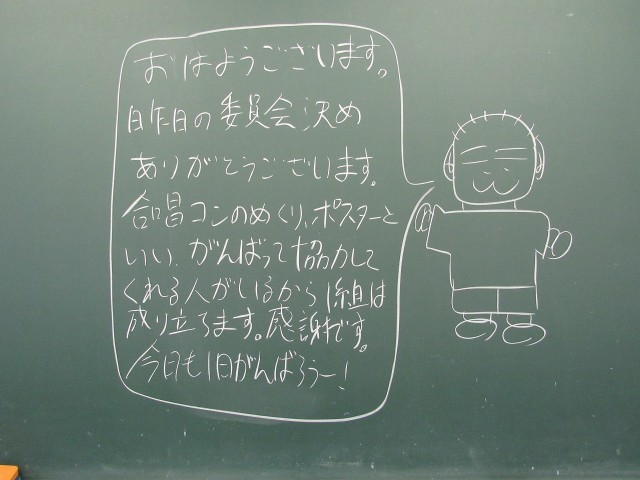 おはようございます。
昨日の委員会決め
ありがとうございます。
合唱コンのめくり、ポスターと
いい、がんばって協力して
くれる人がいるから1組は
成り立ちます。感謝です。
今日も1日がんばろうー!